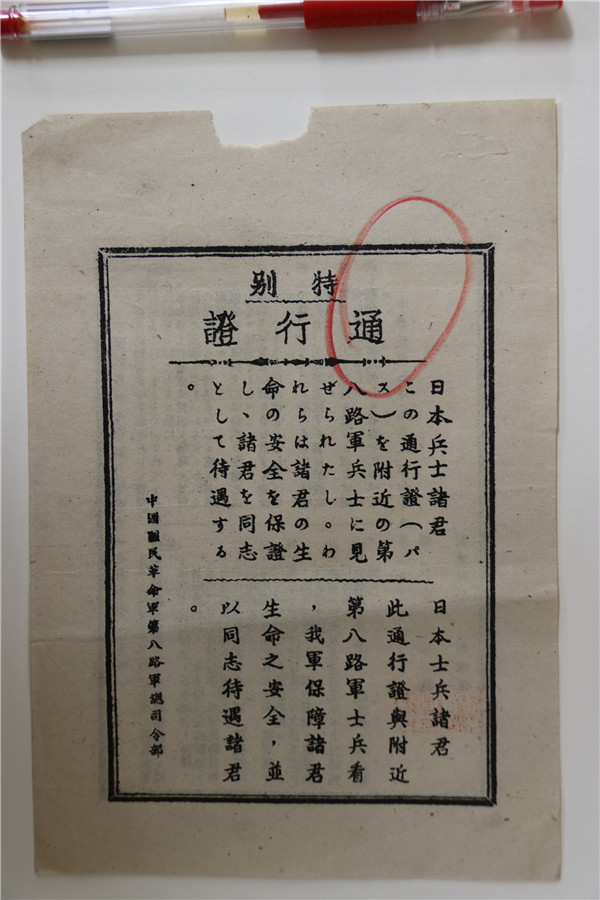 特别
通行證
日本兵士諸君
この通行證(パ
ス)を附近の第
八路軍兵士に見
ぜられたし。わ
れらは諸君の生
命の安全を保證
し、諸君を同志
として待遇する
。
日本士兵諸君
此通行證與附近
第八路軍士兵看
，我軍保障諸君
生命之安全，並
以同志待遇諸君
。
中國國民革命軍第八路軍總司令部